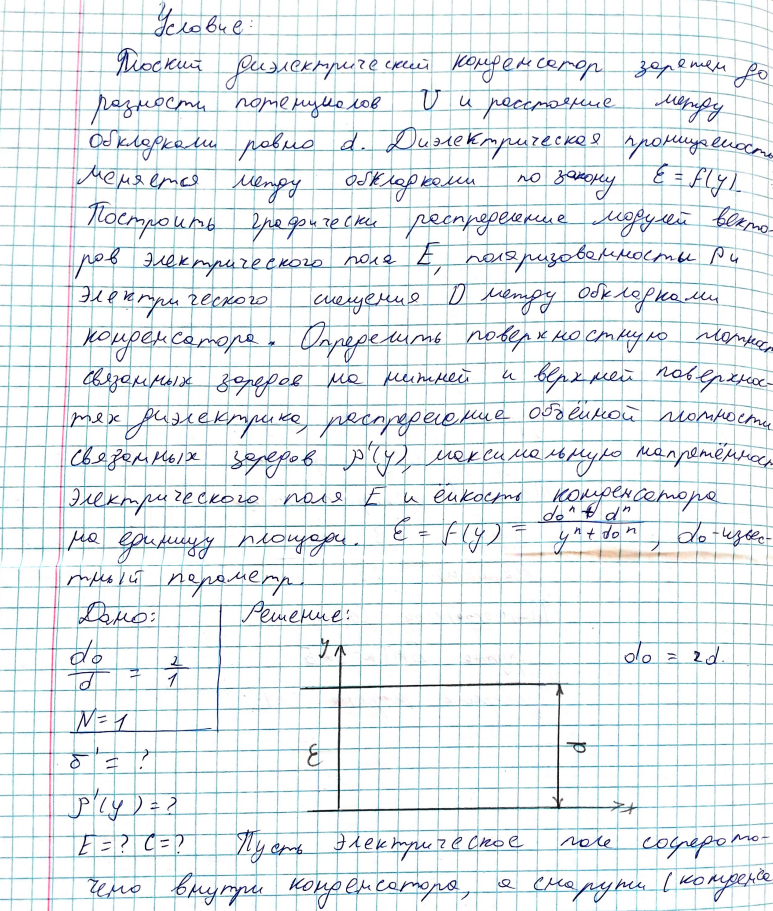 Условие:
Плоский диэлектрический конденсатор заряжен до
разности потенциалов U и расстояние между
обкладками равно d. Диэлектрическая проницаемость
меняется между обкладками по закону ε = f(y).
Построить графически распределение модулей векто-
ров электрического поля E, поляризованносты P и
электрического смещения D между обкладками
конденсатора. Определить поверхностную плотност
связанных зарядов на нижней и верхней поверхнос-
тях диэлектрика, распределение объёмной плотности
связанных зарядов ρ'(y), максимальную напряжённост
электрического поля E и ёмкость конденсатора
на единицу площади. ε = f(y) = (d₀ⁿ + dⁿ)/(yⁿ + d₀ⁿ), d₀ - извес-
тный параметр.
Дано: Решение:
d₀/d = 2/1 y d₀ = 2d.
N = 1
ε d
σ' = ?
ρ'(y) = ? x
E = ? C = ? Пусть электрическое поле сосредото-
чено внутри конденсатора, а снаружи (конденса